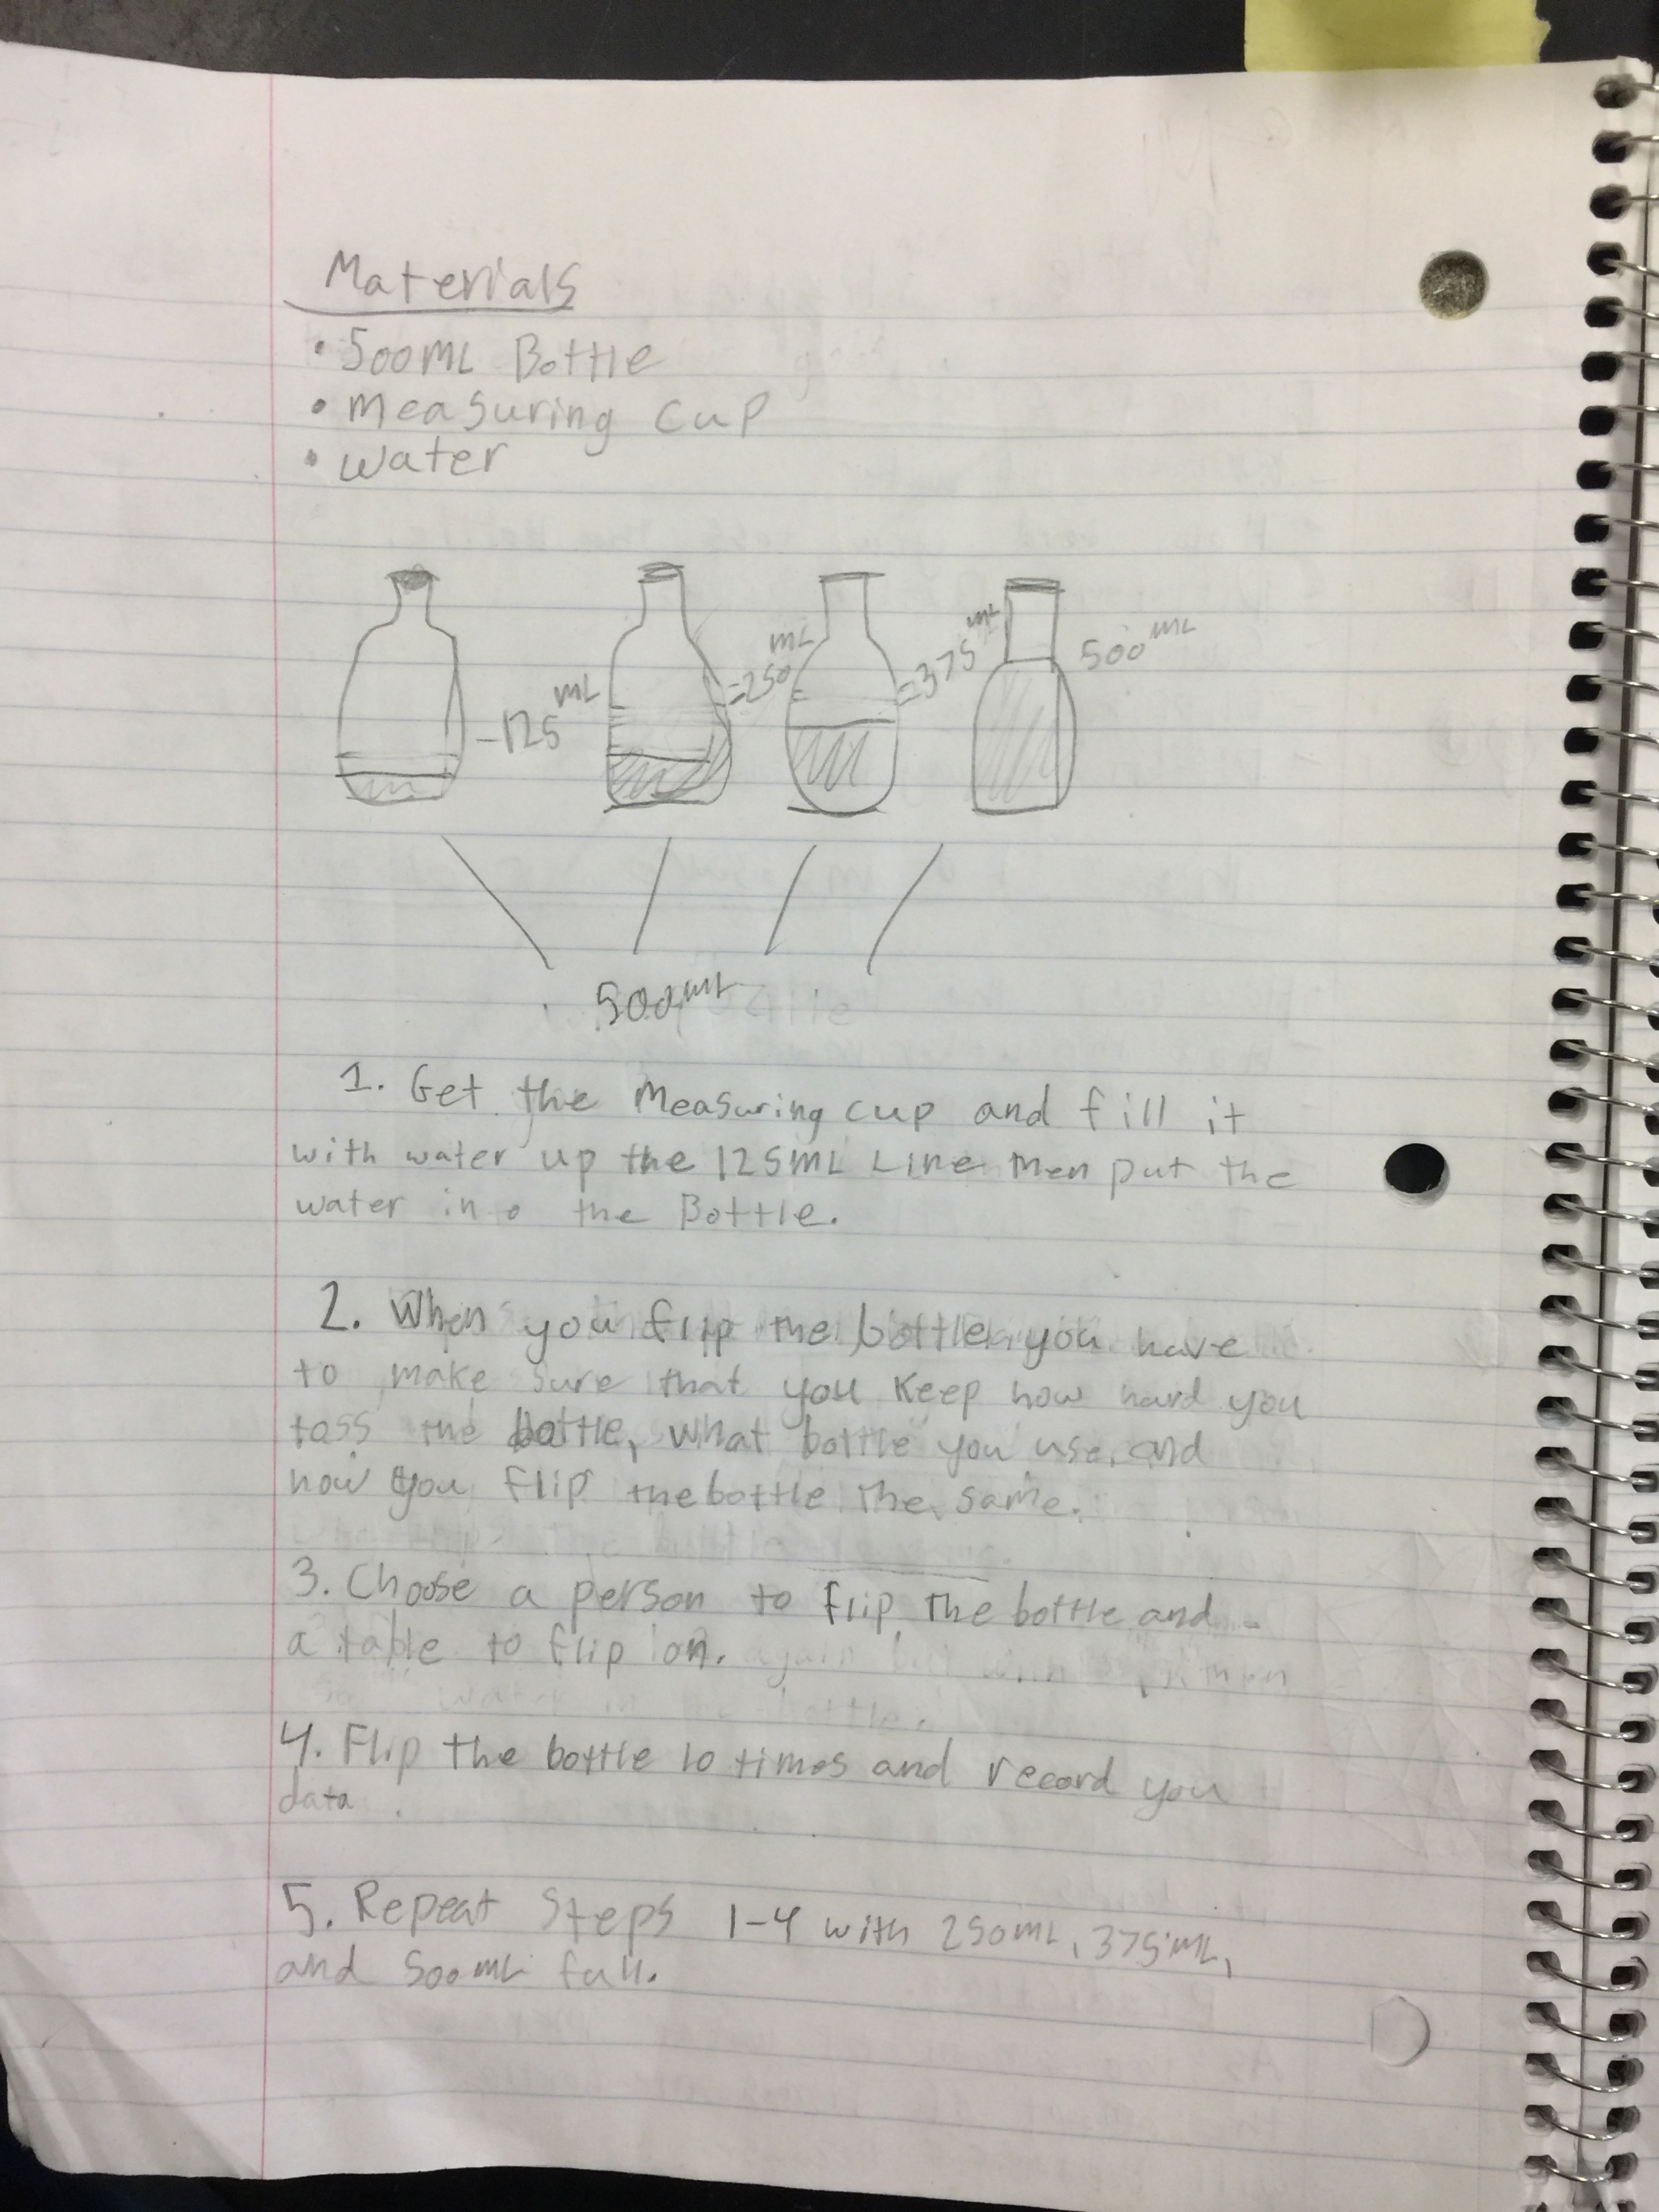 Materials
• 500mL Bottle
• Measuring cup
• water
-125 mL
=250 mL
=375 mL
500 mL
500 mL
1. Get the Measuring cup and fill it
with water up the 125mL Line then put the
water in o the Bottle.
2. When you flip the bottle you have
to make sure that you keep how hard you
toss the bottle, what bottle you use, and
how you flip the bottle the same.
3. Choose a person to flip the bottle and
a table to flip on.
4. Flip the bottle 10 times and record you
data.
5. Repeat Steps 1-4 with 250mL, 375mL,
and 500mL full.